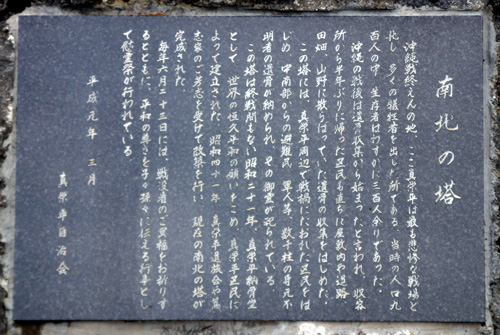 南北の塔
沖縄戦終えんの地、ここ真栄平は最も悲惨な戦場と
化し、多くの犠牲者を出した所である。当時の人口九
百人の中、生存者はわずかに三百人余りであった。
沖縄の戦後は遺骨収集から始まったと言われ、収容
所から半年ぶりに帰った区民も直ちに屋敷内や道路
田畑、山野に散らばっていた遺骨の収集をはじめた。
この塔には、真栄平周辺で戦禍にたおれた区民をは
じめ、中南部からの避難民、軍人等、数千柱の身元不
明者の遺骨が納められ、その御霊が祀られている。
この塔は終戦間もない昭和二十一年、真栄平納骨堂
として、世界の恒久平和の願いをこめ、真栄平区民に
よって建立された。昭和四十一年、真栄平遺族会や篤
志家のご芳志を受けて改築を行い、現在の南北の塔が
完成された。
毎年六月二十三日には、戦没者のご冥福をお祈りす
るとともに、平和の尊さを子々孫々に伝える行事とし
て慰霊祭が行われている。
平成元年 三月
真栄平自治会